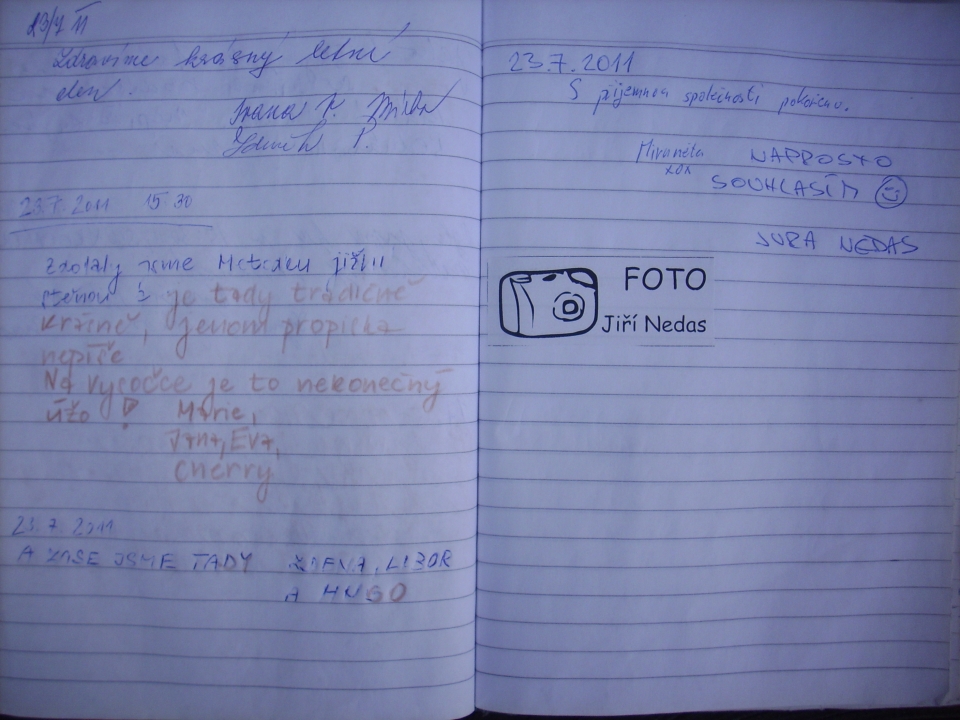 23/7 11
Zdravíme krásný letní
den.
Ivana K. Milan
Zdeněk P.
23.7.2011 15 30
Zdolaly jsme Metodku jižní
stěnou & je tady tradičně
krásně, jenom propiska
nepíše
Na vysočce je to nekonečný
úžo!
Marie,
Jana, Eva,
Cherry
23.7.2011
A ZASE JSME TADY ZDENA, LIBOR
A HUGO
23.7.2011
S příjemnou společností pokořeno.
NAPROSTO
SOUHLASÍM
JURA NEDAS
FOTO
Jiří Nedas